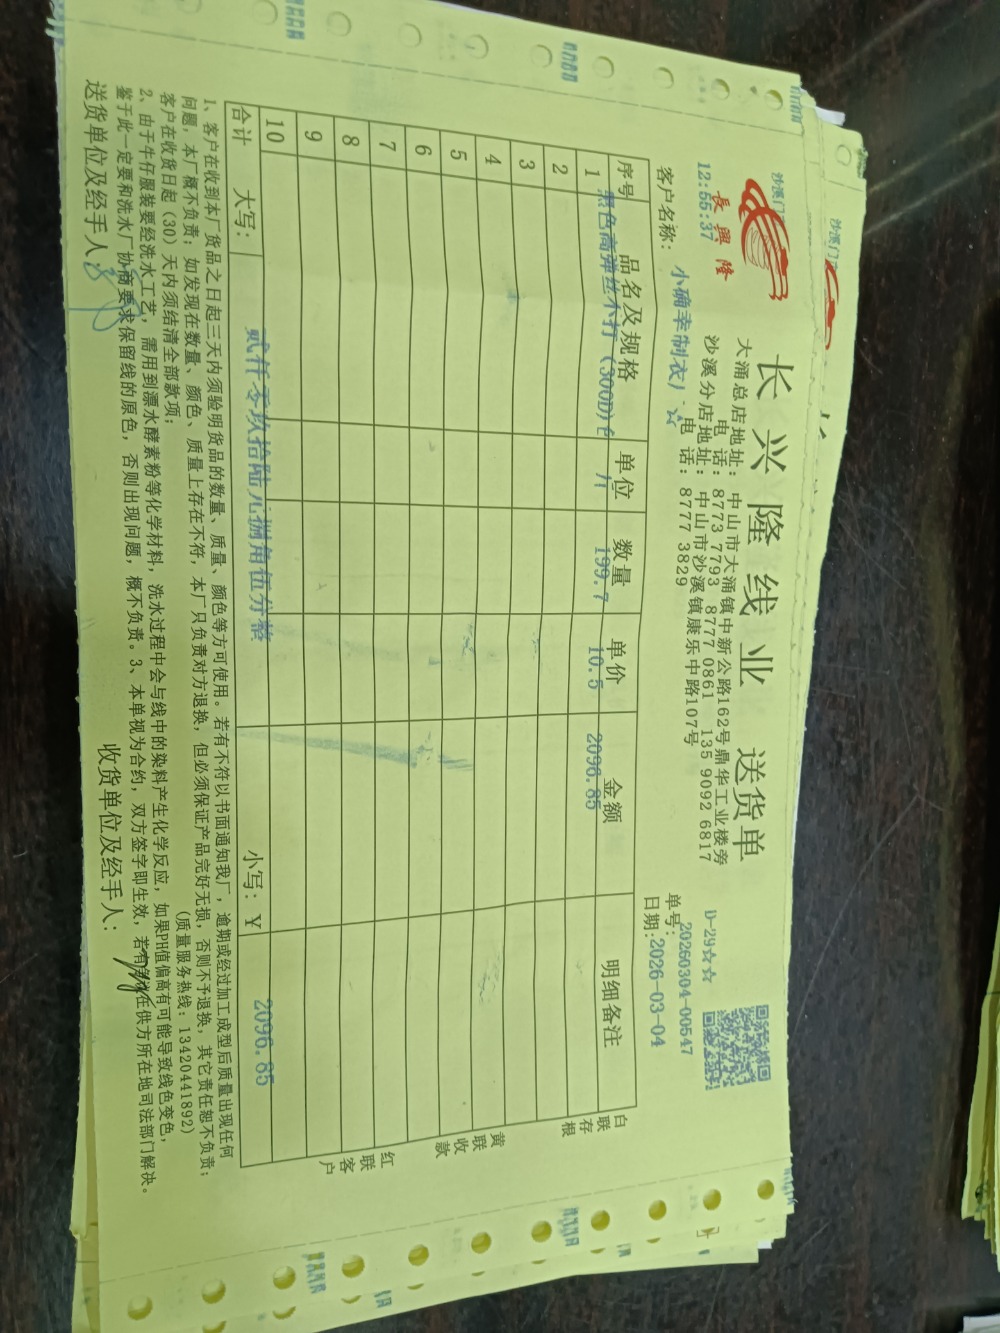 沙溪门
長興隆
12:55:37
长兴隆线业 送货单
大涌总店地址: 中山市大涌镇中新公路162号鼎华工业楼旁
电 话: 8773 7793 8777 0861 135 9092 6817
沙溪分店地址: 中山市沙溪镇康乐中路107号
电 话: 8777 3829
D-29☆☆
单号: 20260304-00547
客户名称: 小确幸制衣厂☆
日期: 2026-03-04
序号 品名及规格 单位 数量 单价 金额 明细备注
1 黑色高弹丝不打(300D) 199.7 10.5 2096.85
2
3
4
5
6
7
8
9
10
合计 大写: 贰仟零玖拾陆元捌角伍分整 小写: ¥ 2096.85
白联存根
黄联收款
红联客户
1、客户在收到本厂货品之日起三天内须验明货品的数量、质量、颜色等方可使用。若有不符以书面通知我厂,逾期或经过加工成型后质量出现任何
问题,本厂概不负责;如发现在数量、颜色、质量上存在不符,本厂只负责对方退换,但必须保证产品完好无损,否则不予退换,其它责任恕不负责;
客户在收货日起(30)天内须结清全部款项; (质量服务热线: 13420441892)
2、由于牛仔服装要经洗水工艺,需用到漂水酵素粉等化学材料,洗水过程中会与线中的染料产生化学反应,如果PH值偏高有可能导致线色变色,
鉴于此一定要和洗水厂协商要求保留线的原色,否则出现问题,概不负责。3、本单视为合约,双方签字即生效,若有 在供方所在地司法部门解决。
送货单位及经手人: 收货单位及经手人: